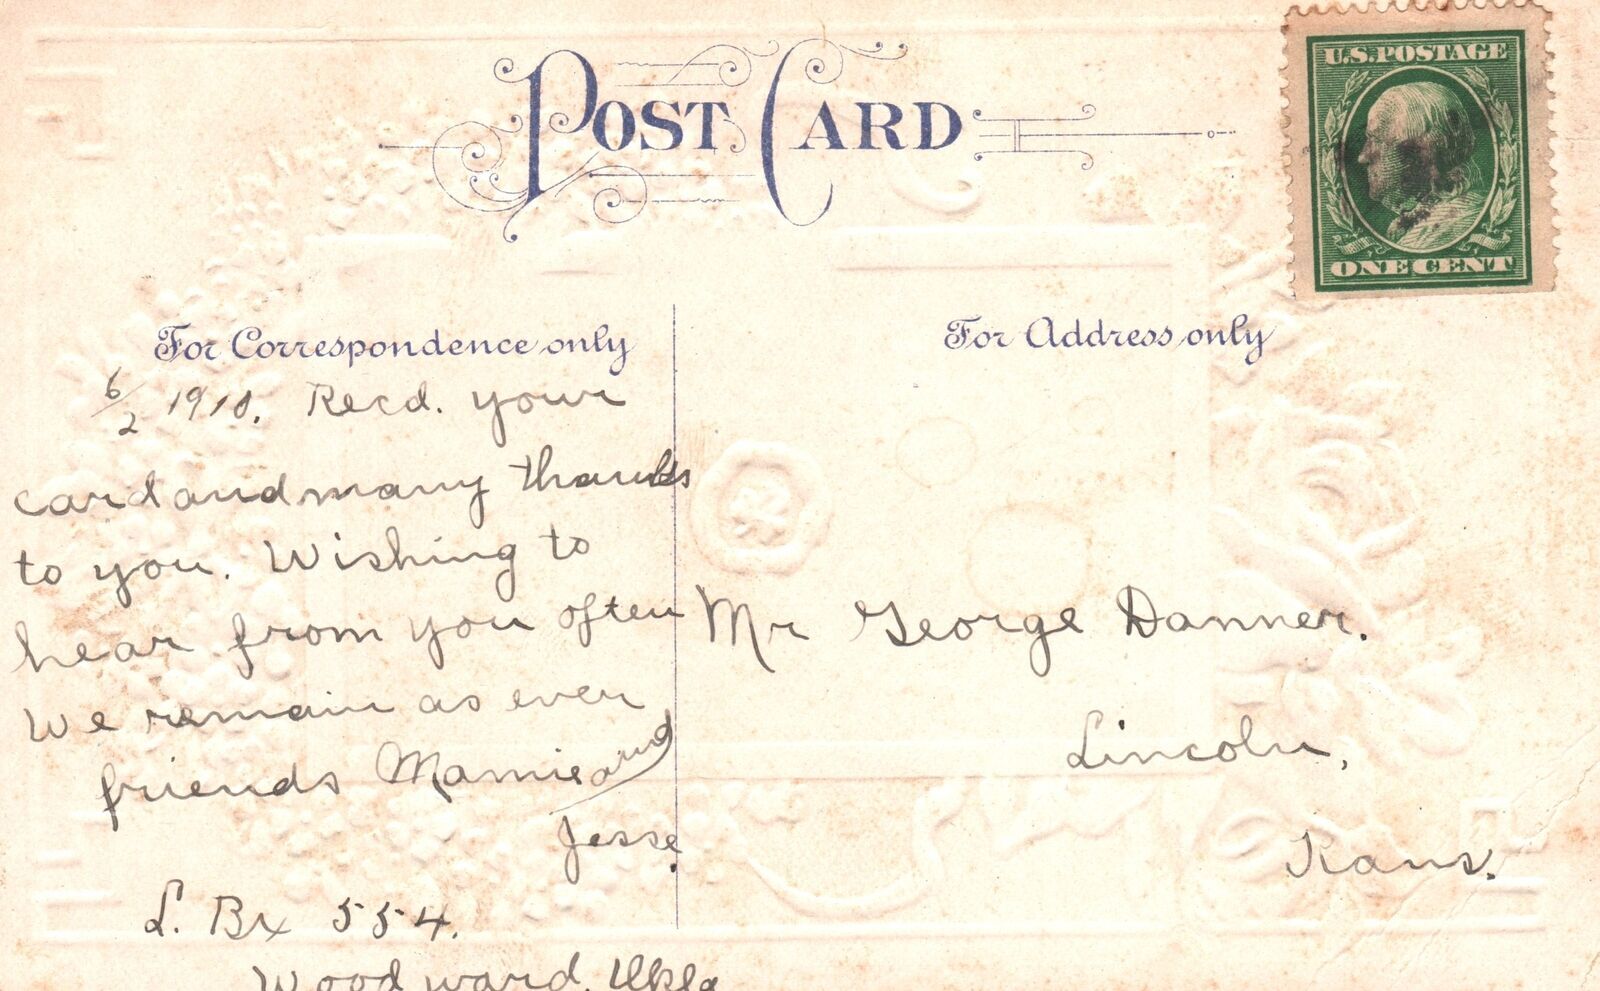 POST CARD
U.S. POSTAGE
ONE CENT
For Correspondence only
For Address only
6/2 1910. Recd. your
card and many thanks
to you. Wishing to
hear from you often
We remain as ever
friends Mamie and
Jesse.
L. Bx 554.
Woodward, Okla
Mr George Danner.
Lincoln,
Kans.